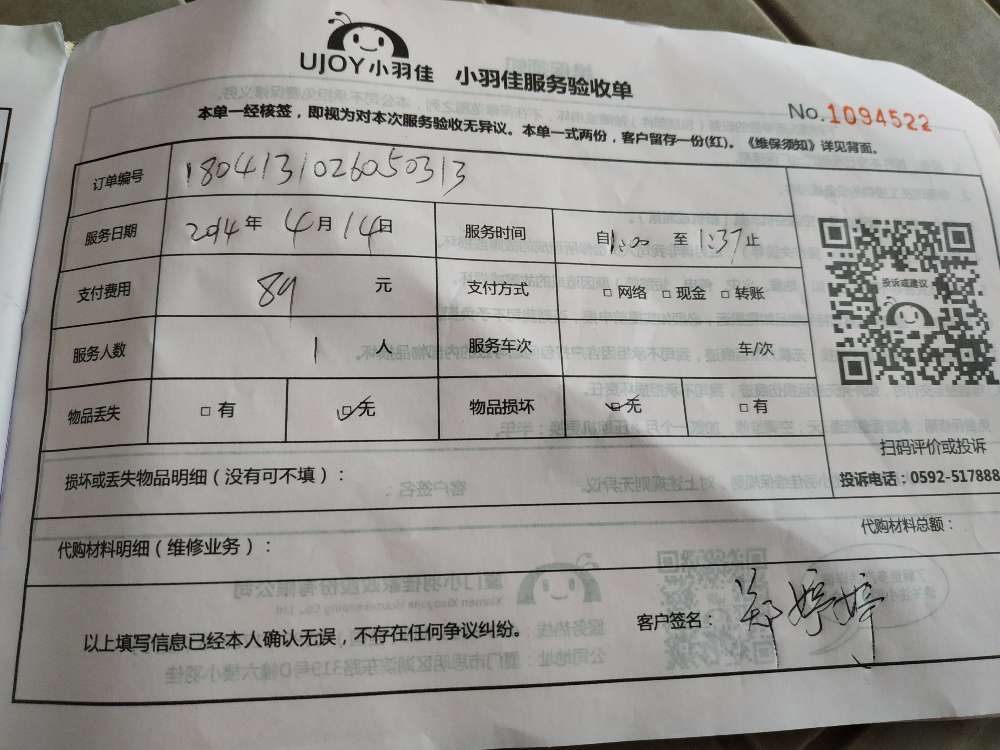 UJOY小羽佳 小羽佳服务验收单
No.1094522
本单一经核签，即视为对本次服务验收无异议。本单一式两份，客户留存一份(红)。《维保须知》详见背面。
订单编号 1804131026050313
服务日期 2014年 4月14日 服务时间 自1:00 至1:37止
支付费用 89 元 支付方式 □ 网络 □ 现金 □ 转账
服务人数 1 人 服务车次 车/次
物品丢失 □ 有 ☑无 物品损坏 ☑无 □ 有
投诉或建议
扫码评价或投诉
投诉电话：0592-517888
损坏或丢失物品明细（没有可不填）：
代购材料明细（维修业务）： 代购材料总额：
以上填写信息已经本人确认无误，不存在任何争议纠纷。 客户签名： 郑婷婷